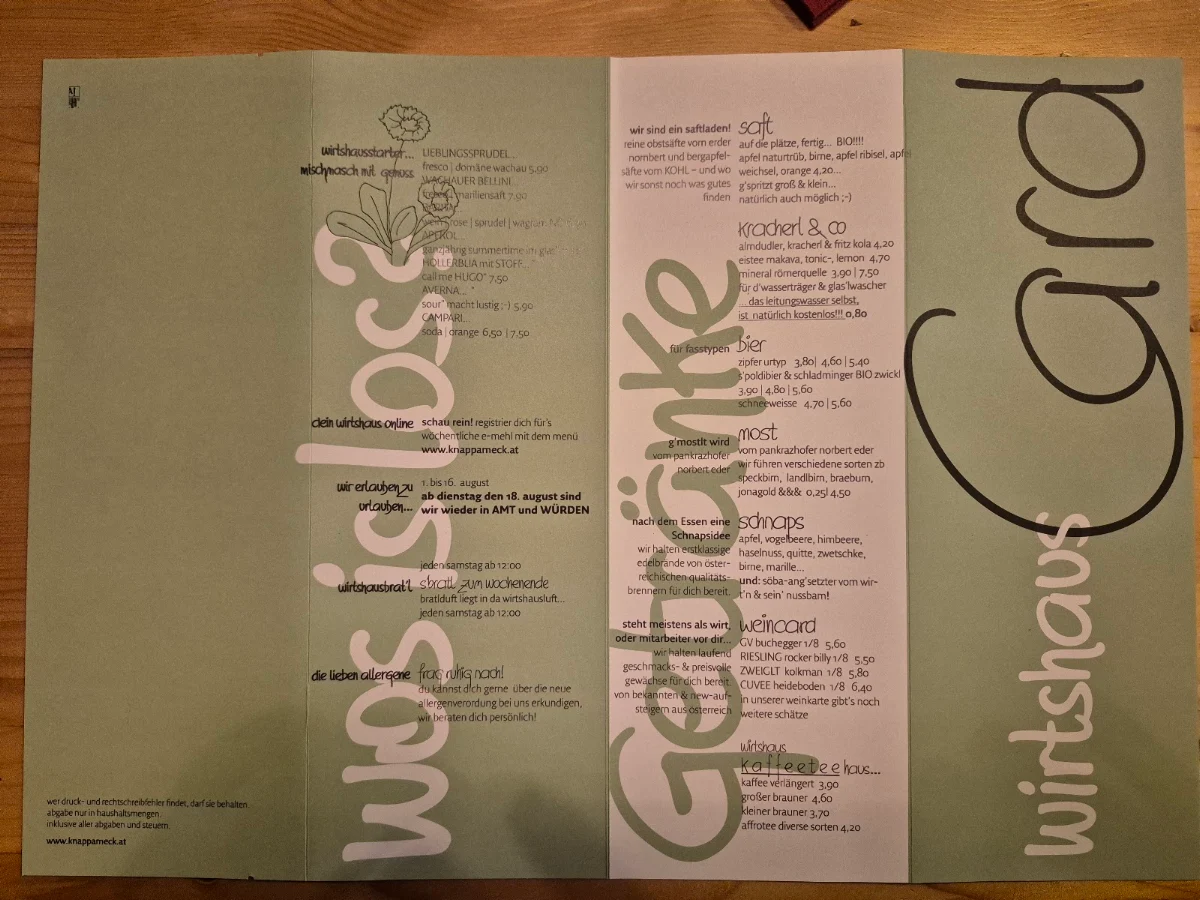 wer druck- und rechtschreibfehler findet, darf sie behalten.
abgabe nur in haushaltsmengen.
inklusive aller abgaben und steuern.
www.knappameck.at
wos is los?
wirtshausstarter...
mischmasch mit genuss
LIEBLINGSSPRUDEL...
fresco | domäne wachau 5,90
WACHAUER BELLINI...
marillensaft 7,90
rose | sprudel | wagram
APEROL
ganzjährig summertime
HOLLERBLIA mit STOFF..."
call me HUGO" 7,50
AVERNA... "
sour" macht lustig ;-) 5,90
CAMPARI...
soda | orange 6,50 | 7,50
dein wirtshaus online
schau rein! registrier dich für's
wöchentliche e-mehl mit dem menü
www.knappameck.at
wir erlauben zu
urlauben...
1. bis 16. august
ab dienstag den 18. august sind
wir wieder in AMT und WÜRDEN
wirtshausbrat'l
jeden samstag ab 12:00
sbratl zum wochenende
bratlduft liegt in da wirtshausluft...
jeden samstag ab 12:00
die lieben allergene
frag ruhig nach!
du kannst dich gerne über die neue
allergenverordung bei uns erkundigen,
wir beraten dich persönlich!
Getränke
wir sind ein saftladen!
reine obstsäfte vom erder
nornbert und bergapfel-
säfte vom KOHL – und wo
wir sonst noch was gutes
finden
saft
auf die plätze, fertig... BIO!!!!
apfel naturtrüb, birne, apfel ribisel, apfel
weichsel, orange 4,20...
g'spritzt groß & klein...
natürlich auch möglich ;-)
kracherl & co
almdudler, kracherl & fritz kola 4,20
eistee makava, tonic-, lemon 4,70
mineral römerquelle 3,90 | 7,50
für d'wasserträger & glas'lwascher
... das leitungswasser selbst,
ist natürlich kostenlos!!! 0,80
für fasstypen
bier
zipfer urtyp 3,80| 4,60 | 5,40
s'poldibier & schladminger BIO zwickl
3,90 | 4,80 | 5,60
schneeweisse 4,70 | 5,60
g'mostlt wird
vom pankrazhofer
norbert eder
most
vom pankrazhofer norbert eder
wir führen verschiedene sorten zb
speckbirn, landlbirn, braeburn,
jonagold &&& 0,25l 4,50
nach dem Essen eine
Schnapsidee
wir halten erstklassige
edelbrände von öster-
reichischen qualitäts-
brennern für dich bereit.
schnaps
apfel, vogelbeere, himbeere,
haselnuss, quitte, zwetschke,
birne, marille...
und: söba-ang'setzter vom wir-
t'n & sein' nussbam!
steht meistens als wirt,
oder mitarbeiter vor dir...
wir halten laufend
geschmacks- & preisvolle
gewächse für dich bereit.
von bekannten & new-auf-
steigern aus österreich
weincard
GV buchegger 1/8 5,60
RIESLING rocker billy 1/8 5,50
ZWEIGLT kolkman 1/8 5,80
CUVEE heideboden 1/8 6,40
in unserer weinkarte gibt's noch
weitere schätze
wirtshaus
kaffeeteehaus...
kaffee verlängert 3,90
großer brauner 4,60
kleiner brauner 3,70
affrotee diverse sorten 4,20
wirtshaus
Card